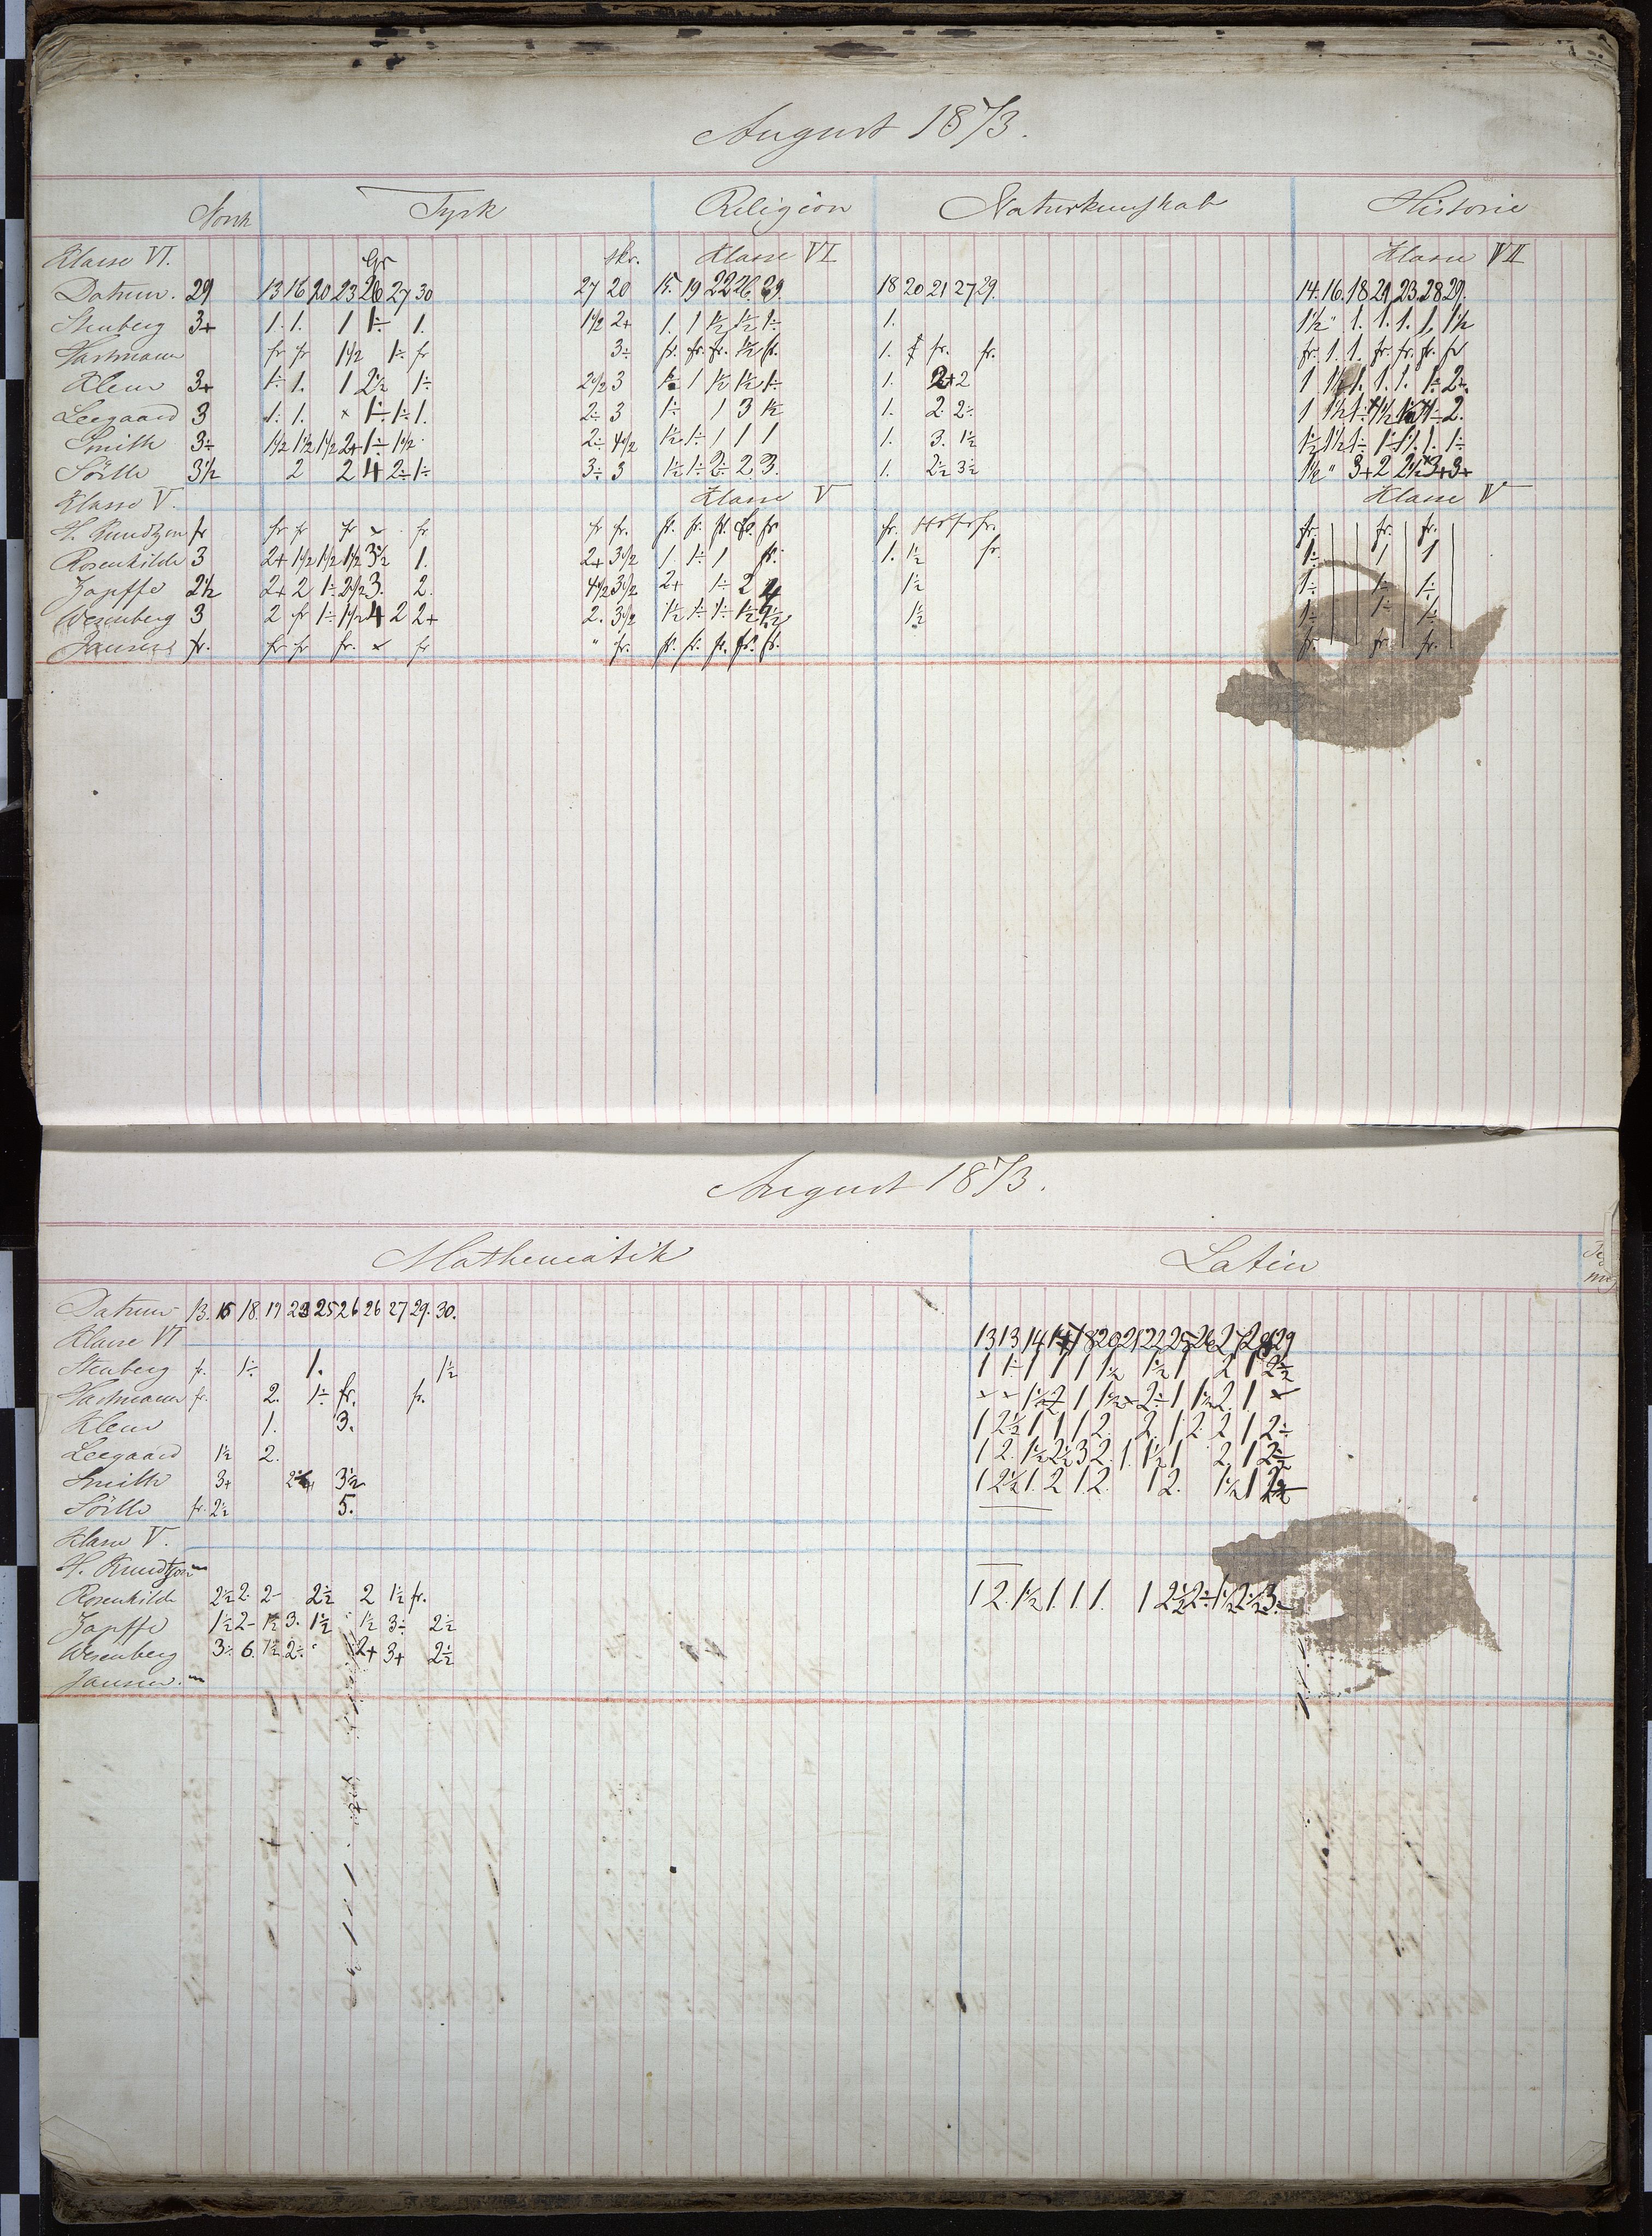 August 1873.
Norsk Tysk Religion Naturkundskab Historie
Klasse VI. Gr skr. Klasse VI Klasse VII
Datum. 29 13 16 20 23 26 27 30 27 20 15. 19 22 26 29. 18 20 21 27 29. 14. 16. 18 21 23. 28 29.
Stenberg 3+ 1. 1. 1 1÷ 1. 1½ 2+ 1. 1 1½ 1½ 1÷ 1. 1½ " 1. 1. 1. 1, 1½
Hartmann fr fr 1½ 1÷ fr 3÷ fr. fr. fr. 1½ fr. 1. fr. fr. fr. 1. 1. fr. fr. fr. fr
Klem 3+ 1÷ 1. 1 2½ 1÷ 2½ 3 1 1½ 1½ 1÷ 1. 2+ 2 1 1. 1. 1. 1÷ 2÷
Leegaard 3 1. 1. × 1÷ 1÷ 1. 2÷ 3 1÷ 1 3 1½ 1. 2. 2÷ 1 1½ 1÷ 2.
Smith 3÷ 1½ 1½ 1½ 2+ 1÷ 1½ 2÷ 4½ 1½ 1÷ 1 1 1 1. 3. 1½ 1½ 1½ 1÷ 1. 1÷
Sörlle 3½ 2 2 4 2÷ 1÷ 3÷ 3 1½ 1÷ 2÷ 2. 3. 1. 2½ 3½ 1½ " 3+ 2 2½ 3+ 3+
Klasse V. Klasse V Klasse V
H. Knudtzon fr fr fr fr × fr fr fr. fr. fr. fr. fr. fr. fr. fr fr fr. fr. fr. fr.
Rosenkilde 3 2+ 1½ 1½ 1½ 3½ 1. 2+ 3½ 1 1÷ 1 fr. 1. 1½ fr. 1÷ 1 1
Zapffe 2½ 2+ 2 1÷ 2½ 3. 2. 4½ 3½ 2+ 1÷ 2 4 1½ 1÷ 1÷ 1÷
Wesenberg 3 2 fr 1÷ 1½ 4 2 2+ 2. 3½ 1½ 1÷ 1÷ 1½ 1½ 1÷ 1÷ 1÷
Jansen fr. fr fr fr. × fr " fr. fr. fr. fr. fr. fr. fr. fr. fr.
August 1873.
Mathematik Latin
Datum 13. 15 18. 19 23 25 26 26 27 29. 30.
Klasse VI 13 13 14 18 20 21 22 25 26 27 28 29
Stenberg fr. 1÷ 1. 1½ 1 1÷ 1 1 1 1 1½ 1½ 1 2 1 2½
Hartmann fr. 2. 1÷ fr. fr. × × 1½ 2 1 1½ × 2÷ 1 1½ 2. 1 ×
Klem 1. 3. 1 2½ 1 1 1 2. 2. 1 2. 2 1 2÷
Leegaard 1½ 2. 1 2. 1½ 2½ 3 2. 1. 1½ 1 2. 1 2÷
Smith 3+ 3½ 1 2½ 1. 2 1 2. 1 2. 1½ 1
Sörlle fr. 2½ 5.
Klasse V.
H. Knudtzon
Rosenkilde 2½ 2. 2- 2½ 2 1½ fr. 1 2. 1½ 1. 1 1. 1 2½ 2÷ 1½ 2½ 3.
Zapffe 1½ 2- 1½ 3. 1½ 1½ 3÷ 2½
Wesenberg 3÷ 6. 1½ 2÷ 2+ 3+ 2½
Jansen.